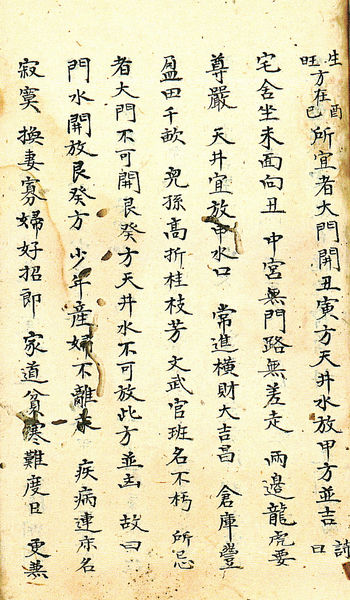 生旺方在酉巳所宜者大門開丑寅方天井水放甲方並吉 詩曰
宅舍坐未面向丑 中宮無門路無差走 兩邊龍虎要
尊嚴 天井宜放甲水口 常進橫財大吉昌 倉庫豐
盈田千畝 兒孫高折桂枝芳 文武官班名不朽 所忌
者大門不可開艮癸方天井水不可放此方並凶 故曰
門水開放艮癸方 少年產婦不離床 疾病連床名
寂寞 換妻寡婦好招郎 家道貧寒難度日 更兼